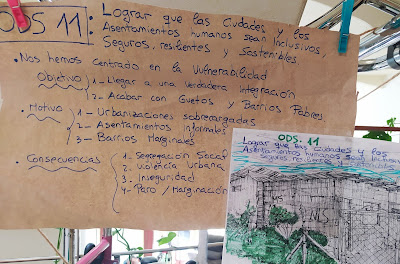 ODS 11: Lograr que las ciudades y los
Asentamientos humanos sean Inclusivos,
Seguros, resilentes y Sostenibles
· Nos hemos centrado en la Vulnerabilidad
Objetivo 1- Llegar a una verdadera Integración
2- Acabar con Guetos y Barrios Pobres
· Motivo 1- Urbanizaciones sobrecargadas
2- Asentamientos Informales
3- Barrios Marginales
· Consecuencias 1- Segregación Social
2- Violencia Urbana
3- Inseguridad
4- Paro / Marginación
ODS. 11
Lograr que las ciudades y los
Asentamientos humanos sean
Seguros,